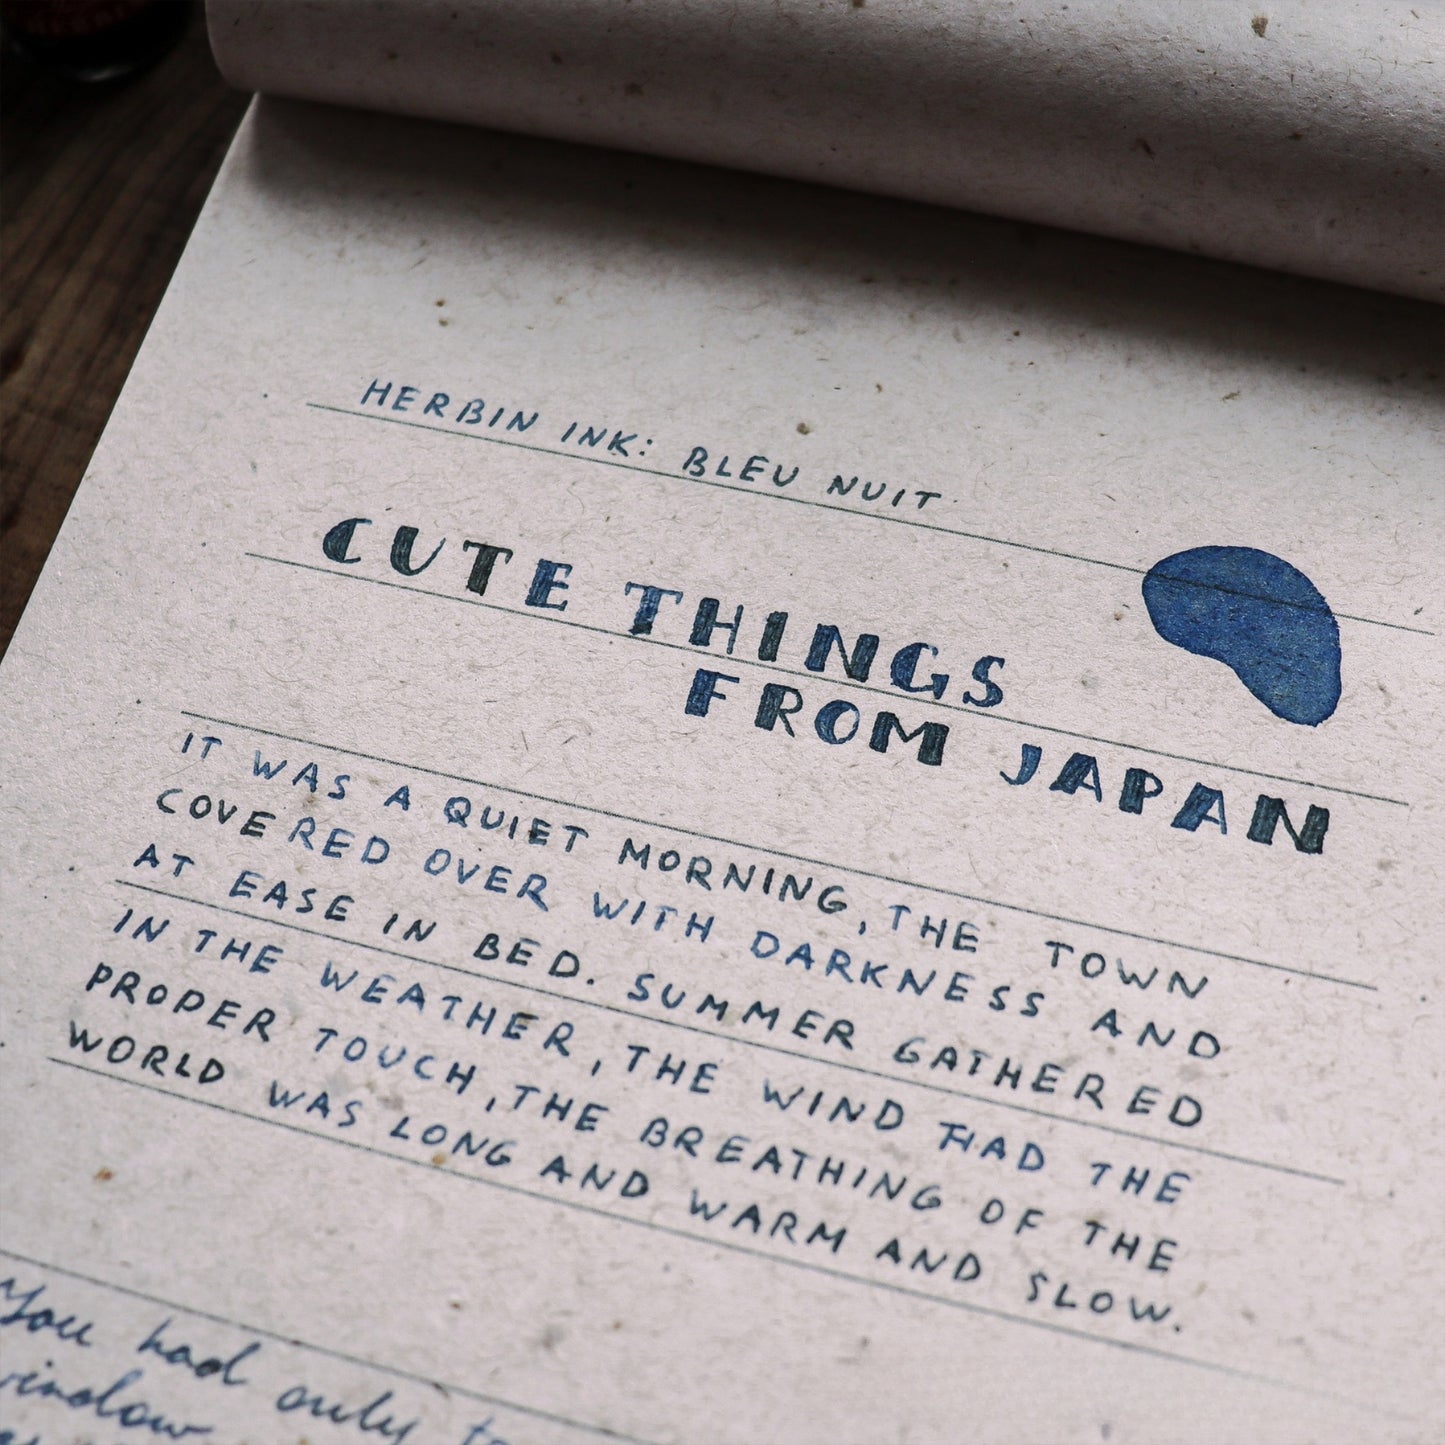 HERBIN INK: BLEU NUIT
CUTE THINGS
FROM JAPAN
IT WAS A QUIET MORNING, THE TOWN
COVERED OVER WITH DARKNESS AND
AT EASE IN BED. SUMMER GATHERED
IN THE WEATHER, THE WIND HAD THE
PROPER TOUCH, THE BREATHING OF THE
WORLD WAS LONG AND WARM AND SLOW.
You had only to
window